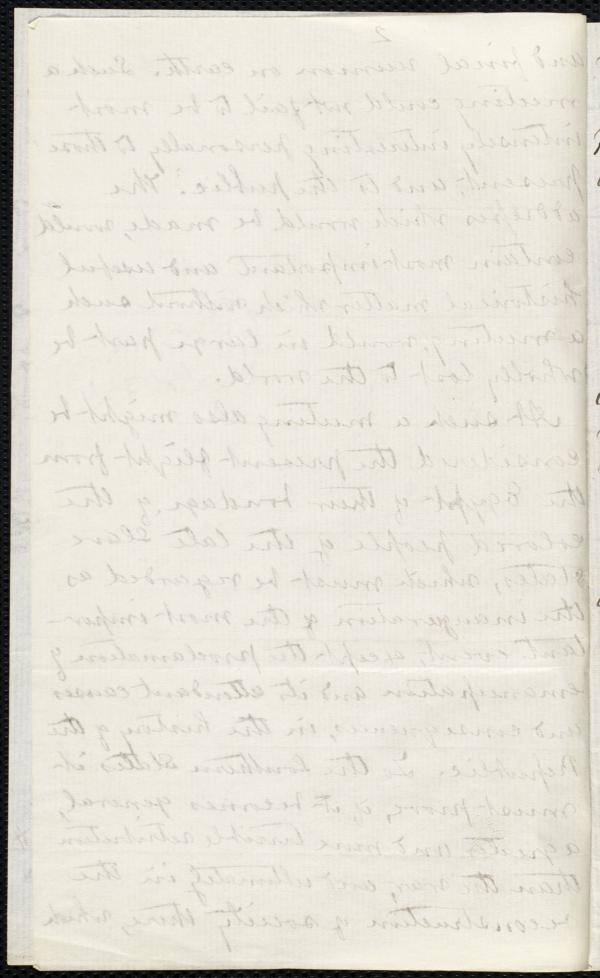 2
and final reunion on earth. Such a
meeting could not fail to be most
intensely interesting personally to those
present, and to the public. The
addresses which would be made, would
contain most important and useful
historical matter which without such
a meeting, would in large part be
wholly lost to the world.
At such a meeting also might be
considered the present flight from
the Egypt of their bondage, of the
colored people of the late slave
States, which must be regarded as
the inauguration of the most impor-
tant event, except the proclamation of
emancipation and its attendant causes
and consequences, in the history of the
Republic. To the Southern States it
must prove, if it becomes general,
a greater and more terrible retribution
than the war, and ultimately in the
reconstruction of society there, which